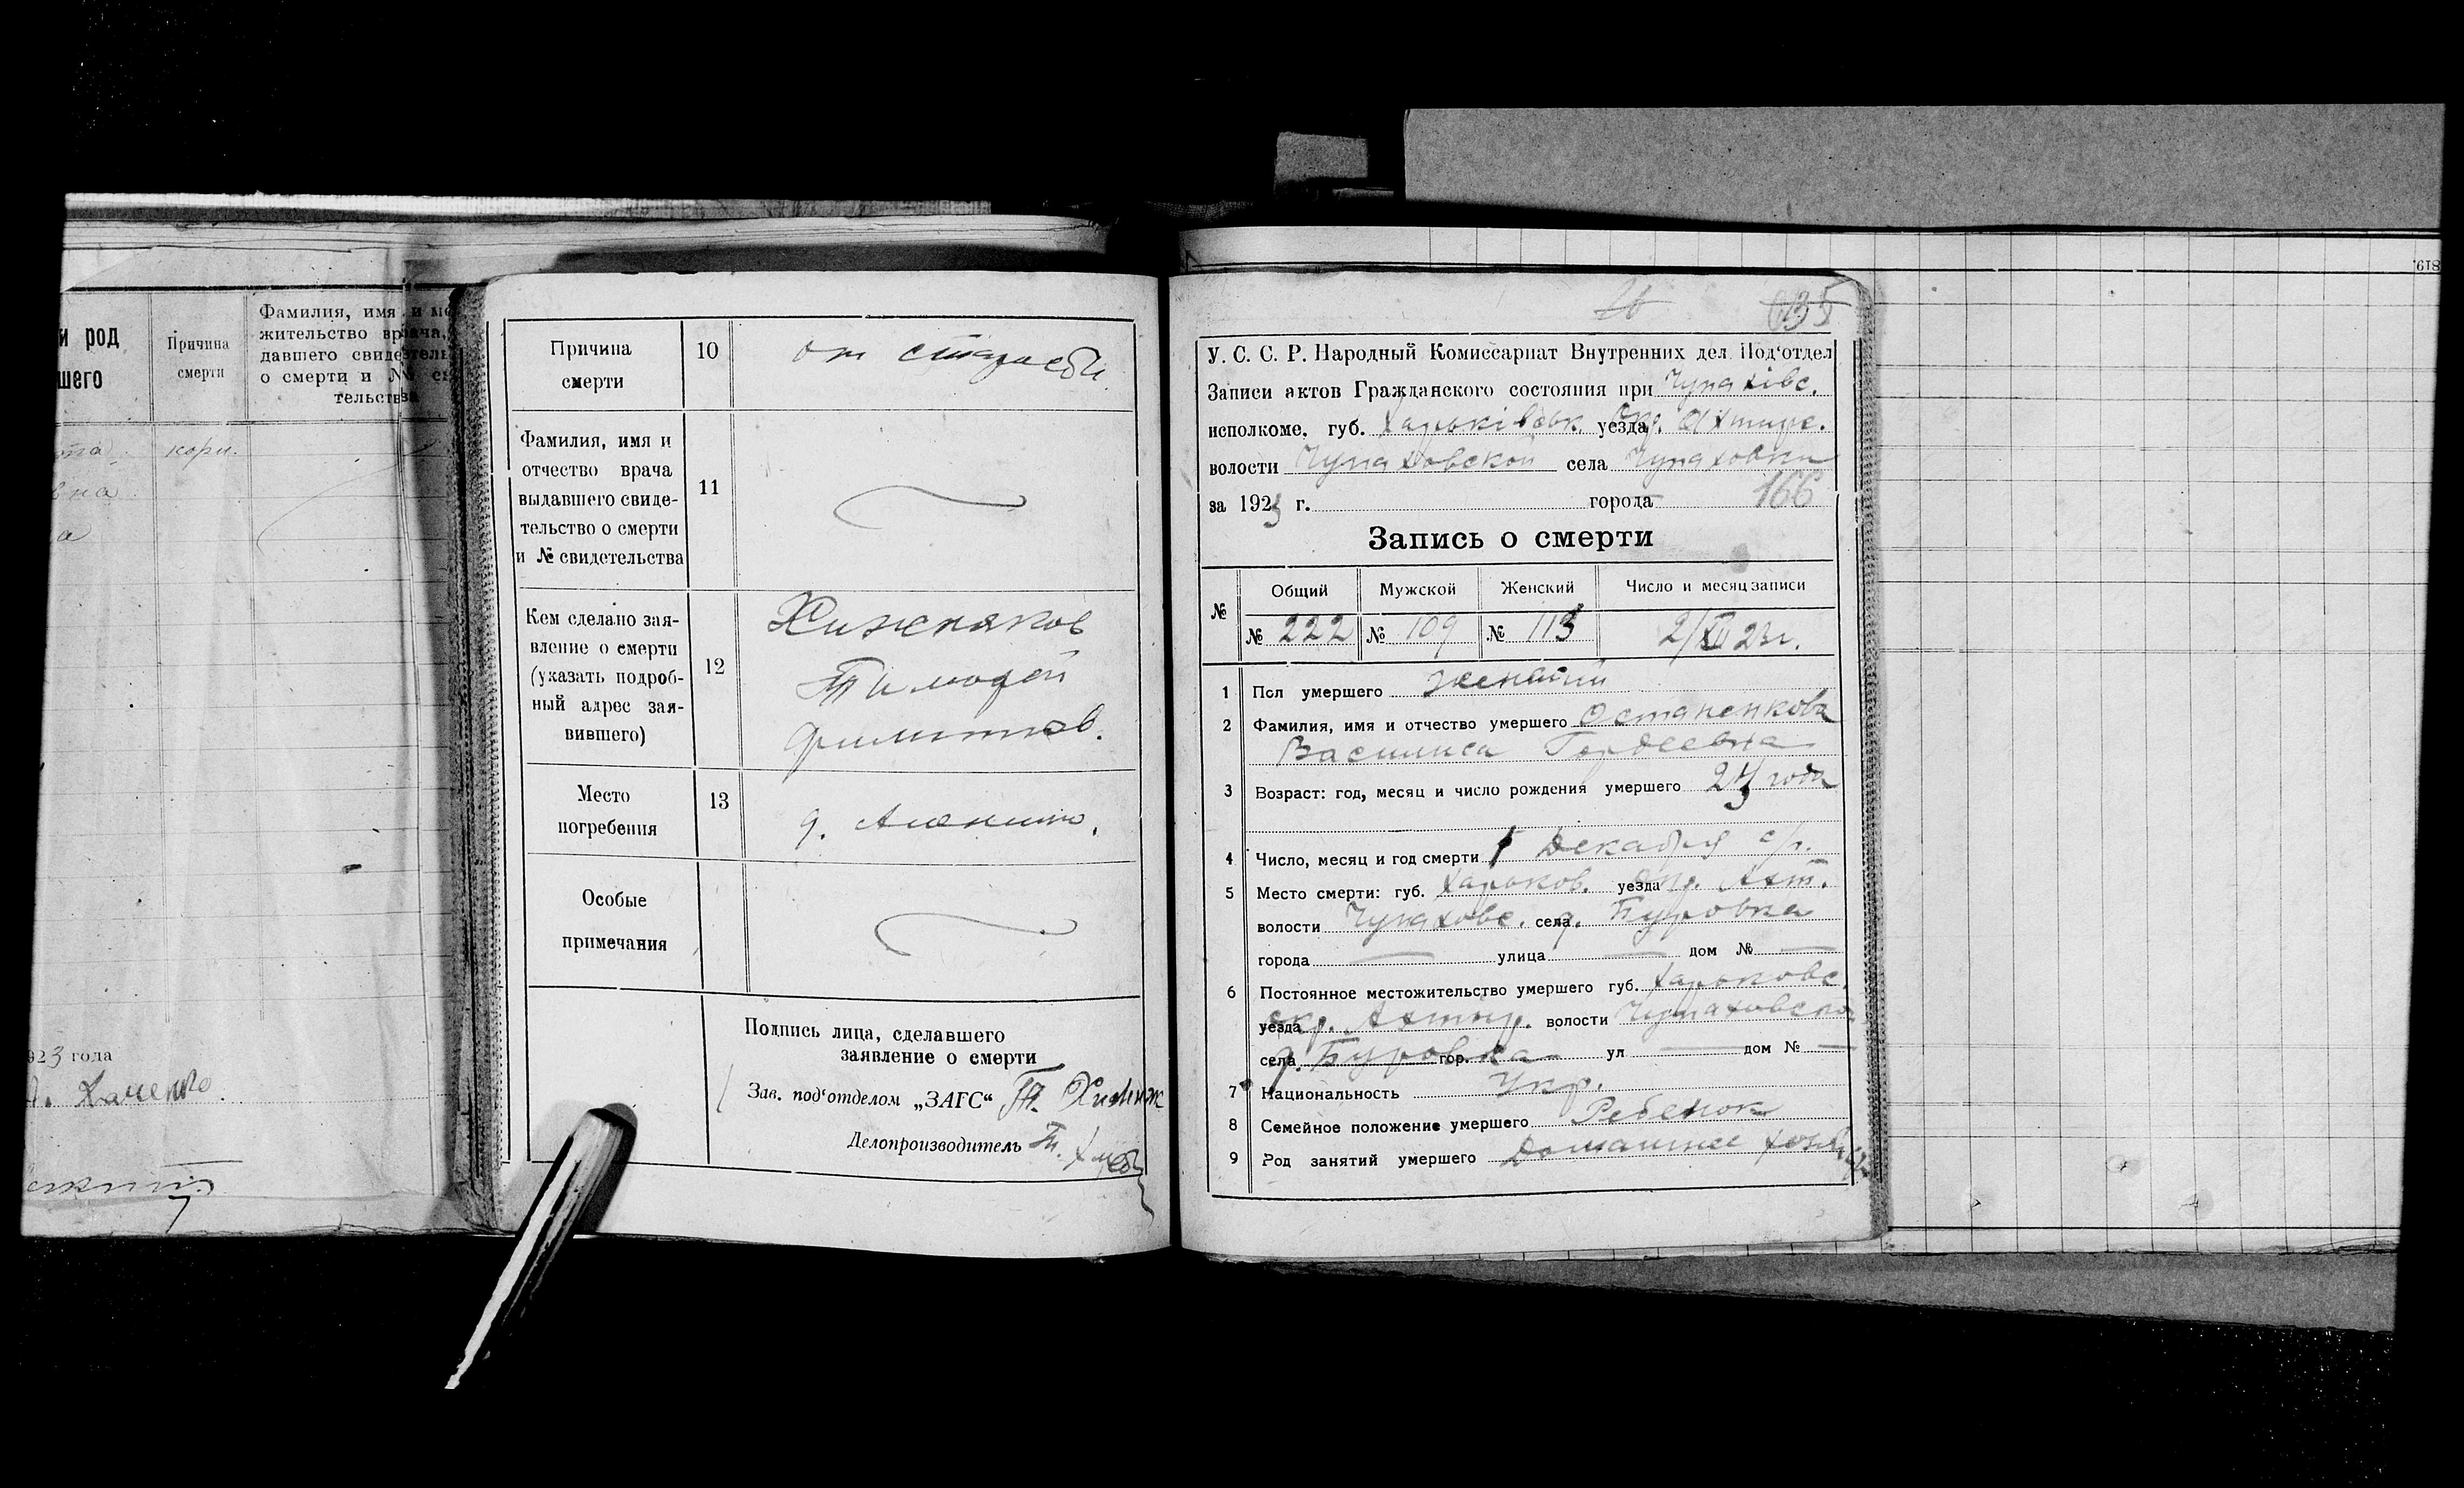 и род
шего
Причина
смерти
Фамилия, имя и ме
жительство врача,
давшего свидетель
о смерти и № св
тельства
кори.
вна
а
923 года
Причина
смерти
10
от старости
Фамилия, имя и
отчество врача
выдавшего свиде-
тельство о смерти
и № свидетельства
11
Кем сделано зая-
вление о смерти
(указать подроб-
ный адрес зая-
вившего)
12
Хижняков
Тимофей
Филиппов.
Место
погребения
13
Особые
примечания
Подпись лица, сделавшего
заявление о смерти
Зав. под‘отделом „ЗАГС“ Т. Хижняк
Делопроизводитель
135
У. С. С. Р. Народный Комиссариат Внутренних дел Под‘отдел
Записи актов Гражданского состояния при Чупахівс.
исполкоме, губ. Харьківськ. уезда Окр. Ахтирс.
волости Чупаховской села Чупаховки
за 1923 г. города 166
Запись о смерти
№ Общий Мужской Женский Число и месяц записи
№ 222 № 109 № 113 2/XII 23 г.
1 Пол умершего женский
2 Фамилия, имя и отчество умершего Остапенкова
Василиса Гордеевна
3 Возраст: год, месяц и число рождения умершего года
4 Число, месяц и год смерти 1 Декабря с/г.
5 Место смерти: губ. Харьков. уезда окр. Ахт.
волости Чупаховс. села д. Буровка
города — улица — дом № —
6 Постоянное местожительство умершего губ. Харьковс.
уезда окр. Ахтыр. волости Чупаховской
села д. Буровка гор. — ул — дом № —
7 Национальность Укр.
8 Семейное положение умершего Ребенок
9 Род занятий умершего Домашнее
819.